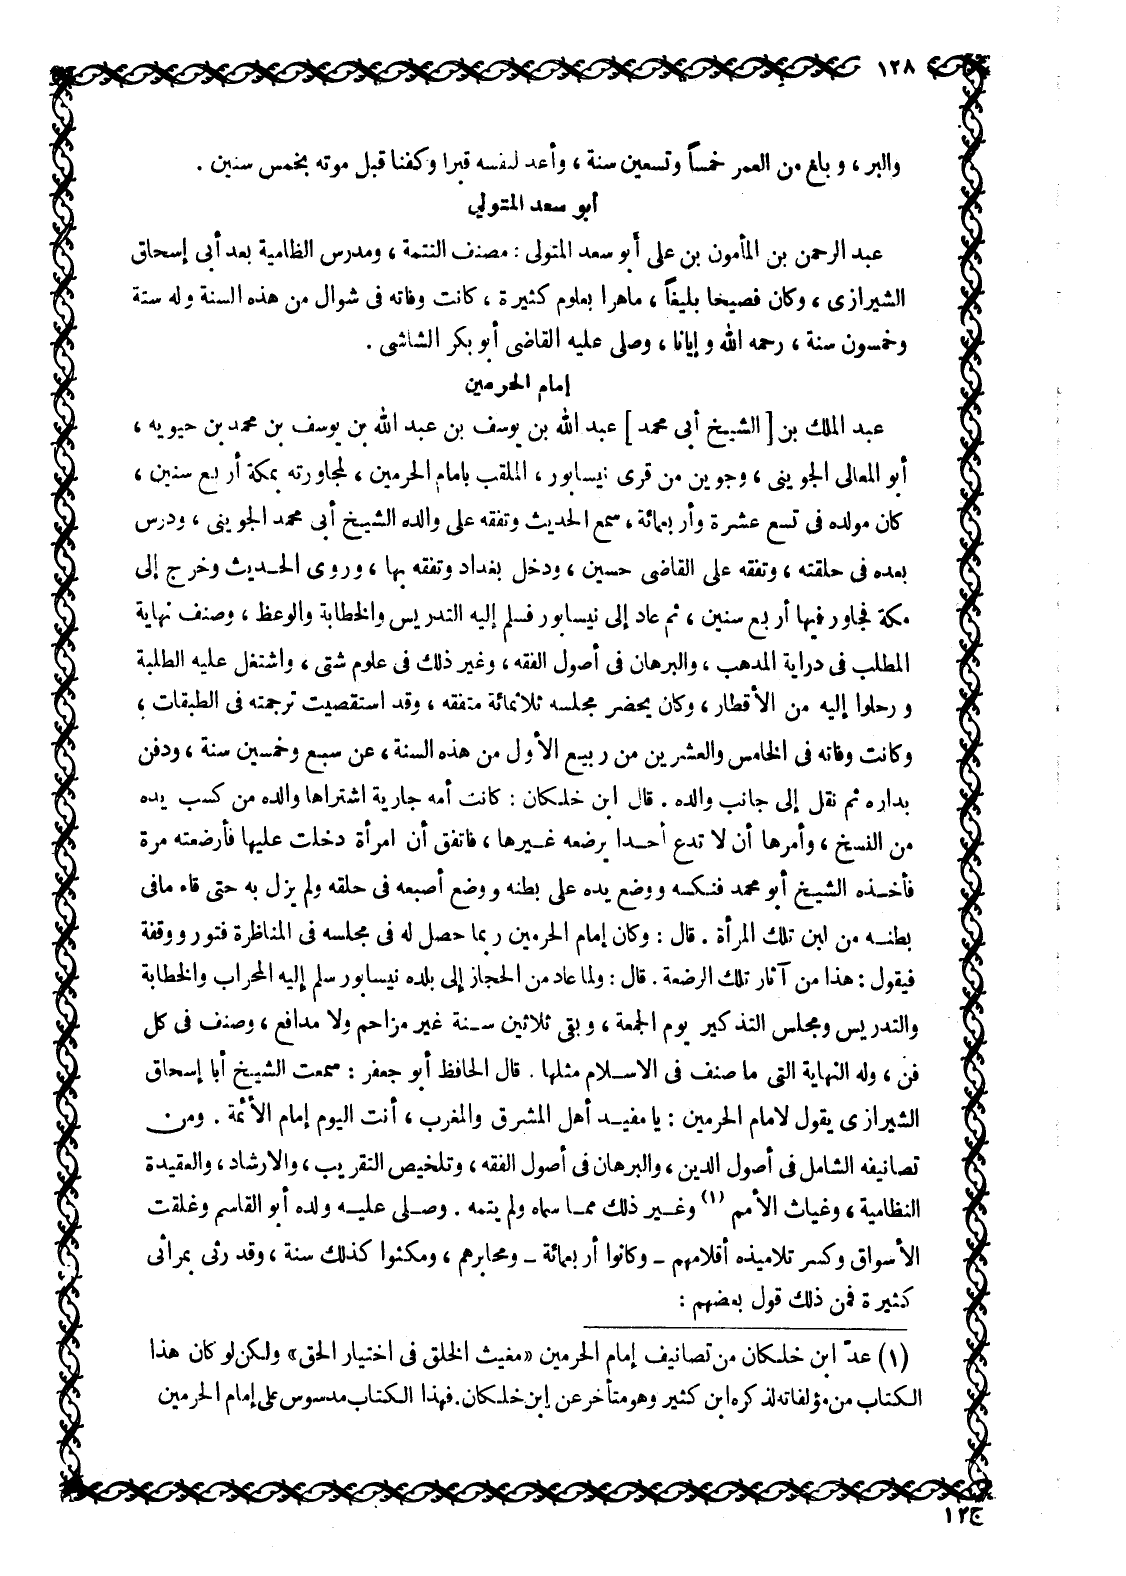 ١٢٨
والبر ، وبلغ من العمر خمساً وتسعين سنة ، وأعد لنفسه قبرا وكفنا قبل موته بخمس سنين .
أبو سعد المتولي
عبد الرحمن بن المأمون بن على أبو سعد المتولى : مصنف التتمة ، ومدرس النظامية بعد أبى إسحاق
الشيرازى ، وكان فصيحا بليغاً ، ماهرا بعلوم كثيرة ، كانت وفاته فى شوال من هذه السنة وله ستة
وخمسون سنة ، رحمه الله و إيانا ، وصلى عليه القاضى أبو بكر الشاشى .
إمام الحرمين
عبد الملك بن [ الشيخ أبى محمد ] عبد الله بن يوسف بن عبد الله بن يوسف بن محمد بن حيويه ،
أبو المعالى الجوينى ، وجوين من قرى نيسابور ، الملقب بامام الحرمين ، لمجاورته بمكة أربع سنين ،
كان مولده فى تسع عشرة وأربعمائة ، سمع الحديث وتفقه على والده الشيخ أبى محمد الجوينى ، ودرس
بعده فى حلقته ، وتفقه على القاضى حسين ، ودخل بغداد وتفقه بها ، وروى الحديث وخرج إلى
مكة فجاور فيها أربع سنين ، ثم عاد إلى نيسابور فسلم إليه التدريس والخطابة والوعظ ، وصنف نهاية
المطلب فى دراية المذهب ، والبرهان فى أصول الفقه ، وغير ذلك فى علوم شتى ، واشتغل عليه الطلبة
ورحلوا إليه من الأقطار ، وكان يحضر مجلسه ثلاثمائة متفقه ، وقد استقصيت ترجمته فى الطبقات ،
وكانت وفاته فى الخامس والعشرين من ربيع الأول من هذه السنة ، عن سبع وخمسين سنة ، ودفن
بداره ثم نقل إلى جانب والده . قال ابن خلكان : كانت أمه جارية اشتراها والده من كسب يده
من النسخ ، وأمرها أن لا تدع أحدا يرضعه غيرها ، فاتفق أن امرأة دخلت عليها فأرضعته مرة
فأخذه الشيخ أبو محمد فنكسه ووضع يده على بطنه ووضع أصبعه فى حلقه ولم يزل به حتى قاء مافى
بطنه من لبن تلك المرأة . قال : وكان إمام الحرمين ربما حصل له فى مجلسه فى المناظرة فتور ووقفة
فيقول : هذا من آثار تلك الرضعة . قال : ولما عاد من الحجاز إلى بلده نيسابور سلم إليه المحراب والخطابة
والتدريس ومجلس التذكير يوم الجمعة ، وبقى ثلاثين سنة غير مزاحم ولا مدافع ، وصنف فى كل
فن ، وله النهاية التى ما صنف فى الاسلام مثلها . قال الحافظ أبو جعفر : سمعت الشيخ أبا إسحاق
الشيرازى يقول لامام الحرمين : يا مفيد أهل المشرق والمغرب ، أنت اليوم إمام الأئمة . ومن
تصانيفه الشامل فى أصول الدين ، والبرهان فى أصول الفقه ، وتلخيص التقريب ، والارشاد ، والعقيدة
النظامية ، وغياث الأمم (١) وغير ذلك مما سماه ولم يتمه . وصلى عليه ولده أبو القاسم وغلقت
الأسواق وكسر تلاميذه أقلامهم ــ وكانوا أربعمائة ــ ومحابرهم ، ومكثوا كذلك سنة ، وقد رثى بمراثى
كثيرة فمن ذلك قول بعضهم :
(١) عدّ ابن خلكان من تصانيف إمام الحرمين «مغيث الخلق فى اختيار الحق» ولكن لو كان هذا
الكتاب من مؤلفاته لذكره ابن كثير وهو متأخر عن إبن خلكان. فهذا الكتاب مدسوس على إمام الحرمين
ج١٢